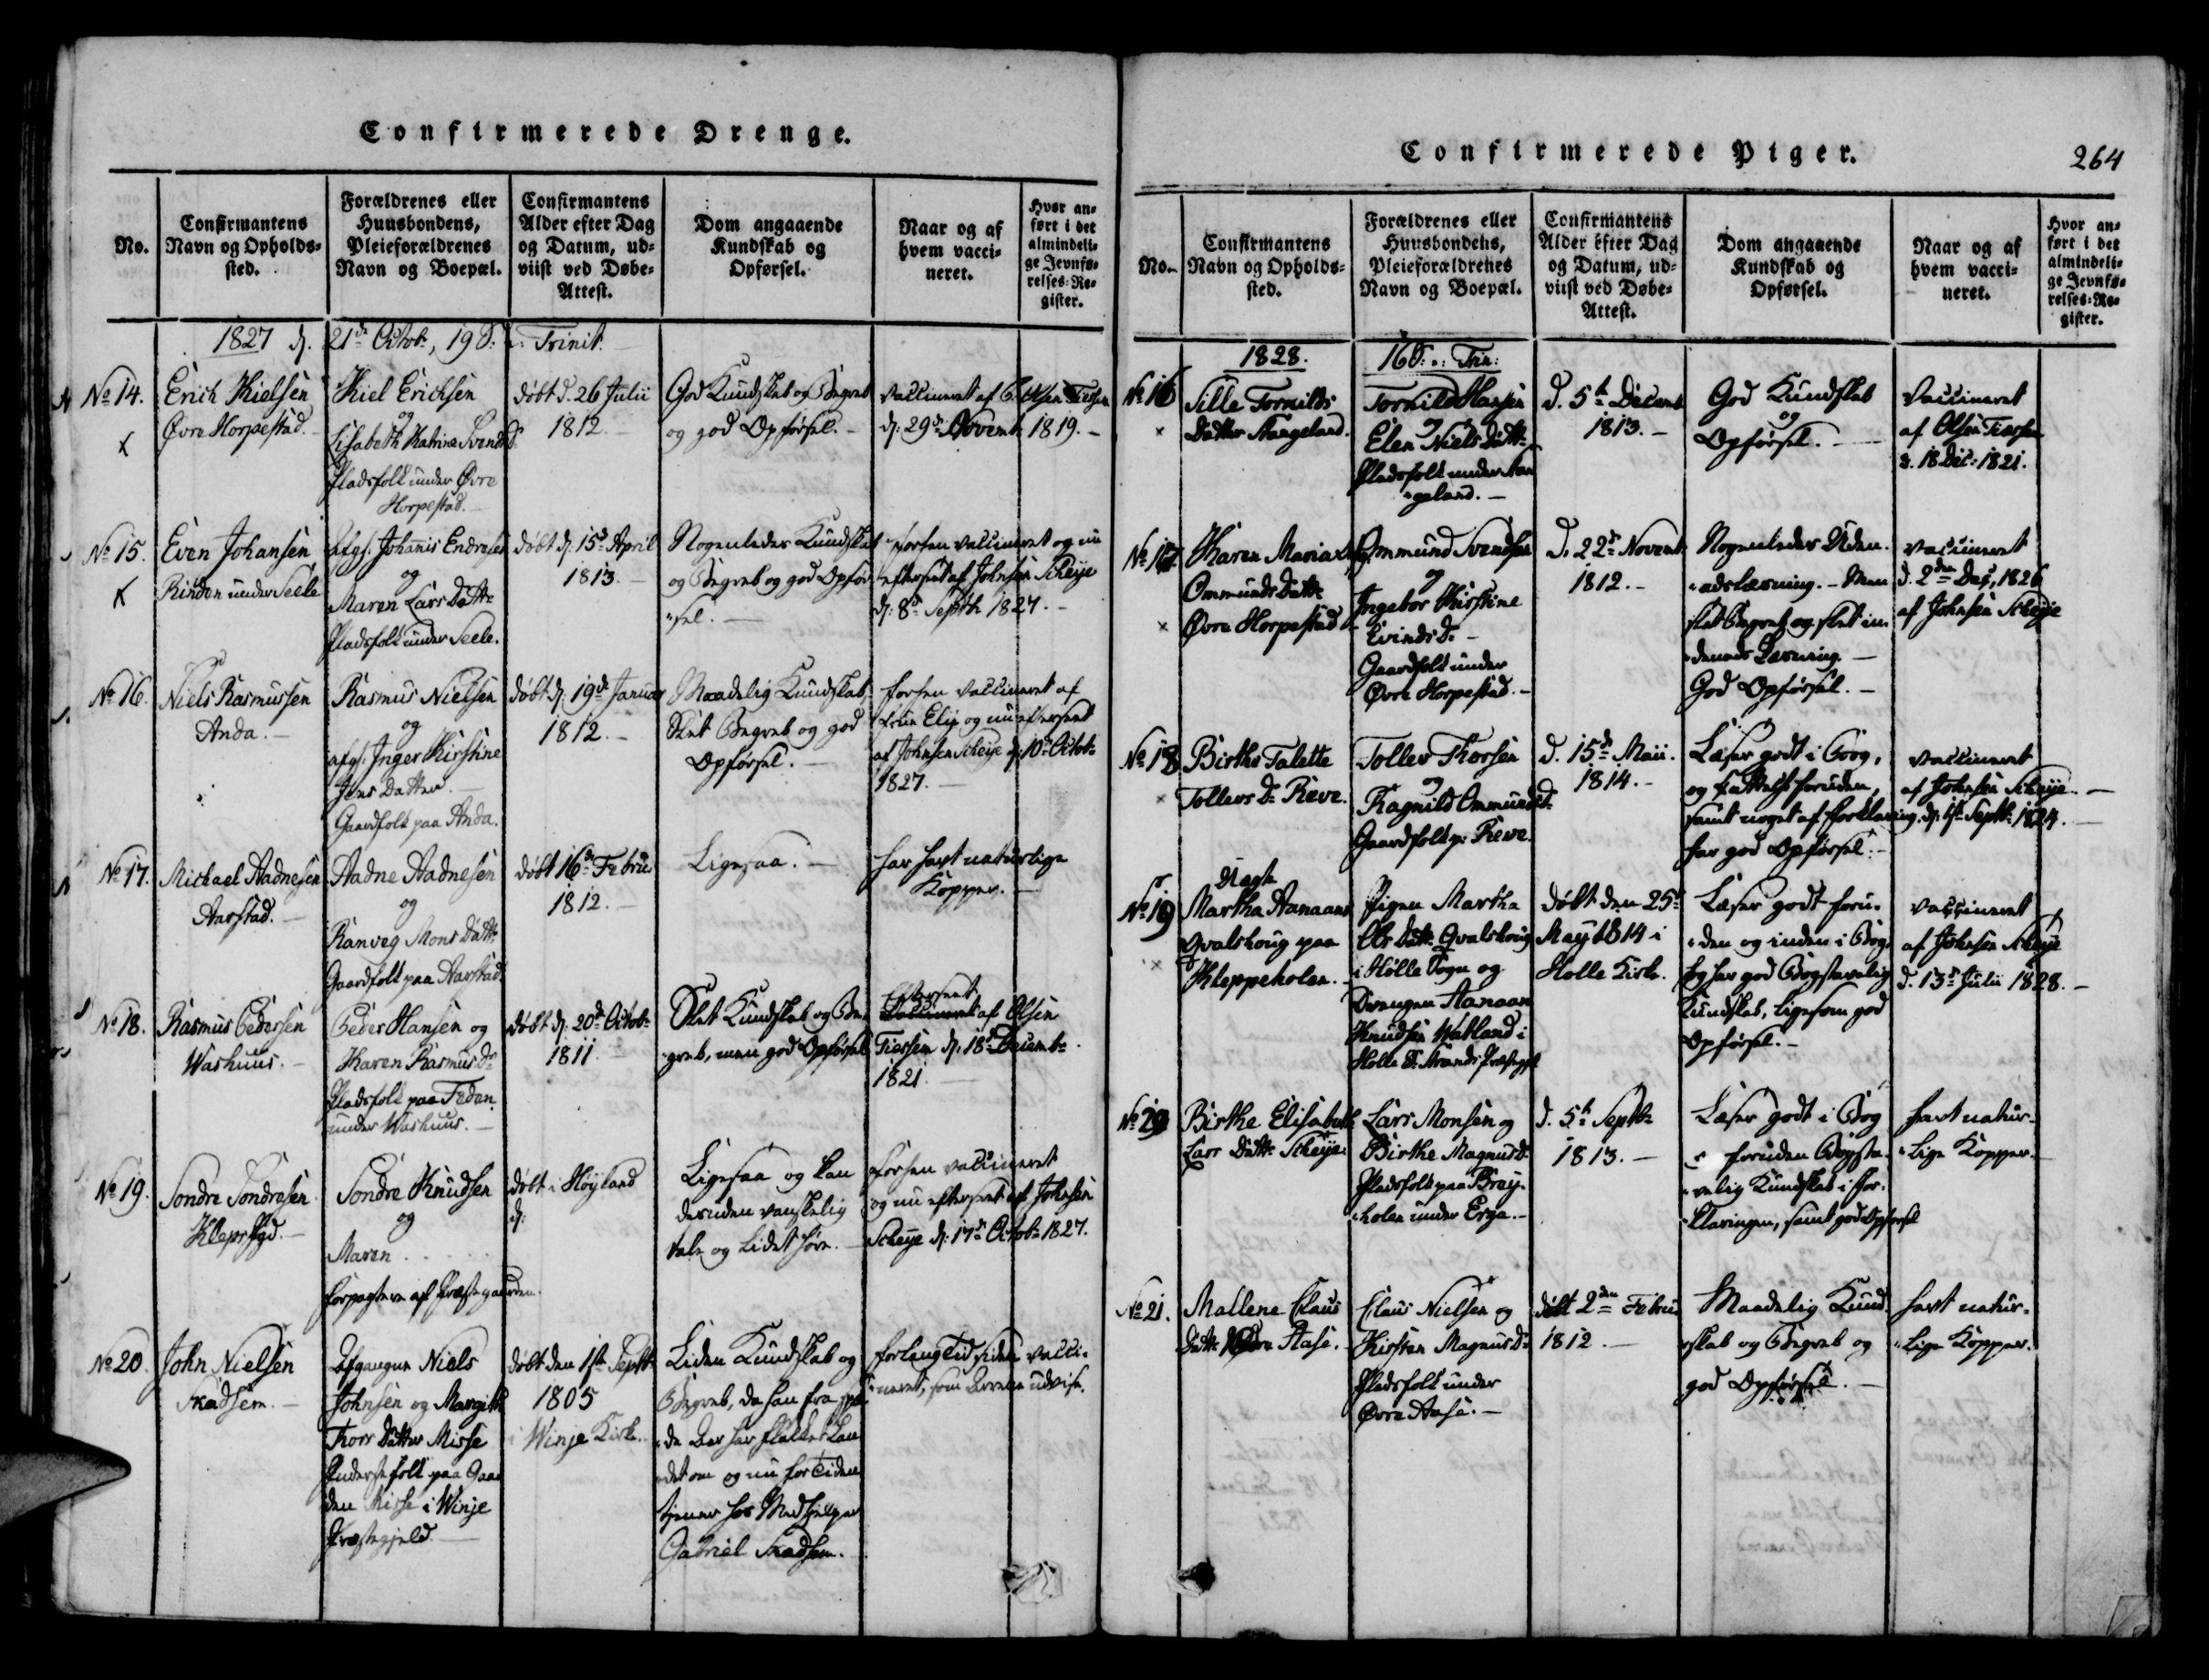 Confirmerede Drenge.
No.
Confirmantens
Navn og Opholds-
sted.
Forældrenes eller
Huusbondens,
Pleieforældrenes
Navn og Boepæl.
Confirmantens
Alder efter Dag
og Datum, ud-
viist ved Døbe-
Attest.
Dom angaaende
Kundskab og
Opførsel.
Naar og af
hvem vacci-
neret.
Hvor an-
ført i det
almindeli-
ge Jevnfø-
relses-Re-
gister.
1827 d. 21de Octobr, 19 S. Trinit.
No 14.
Erich Kielsen
Øvre Horpestad.
Kiel Erichsen
og
Lisabeth Katrine Svends D.
Pladsfolk under Øvre
Horpestad.
døbt d. 26 Julii
1812.
God Kundskab og Begreb
og god Opførsel.
Vaccineret af
d: 29de Novembr 1819.
No 15.
Even Johansen
Rindon under Seele
Afg: Johanis Endresen
og
Maren Lars Dattr
Pladsfolk under Seele.
døbt d: 15de April
1813.
Nogenledes Kundskab
og Begreb og god Opfør-
sel.
forhen vaccineret og nu
efterseet af Johnsen Scheije
d: 8de Septbr 1827.
No 16.
Niels Rasmussen
Anda.
Rasmus Nielsen
og
afg: Inger Kirstine
Jens Datter.
Gaardfolk paa Anda.
døbt d: 19de Januar
1812.
Maadelig Kundskab,
Slet Begreb og god
Opførsel.
forhen vaccineret af
og nu efterseet
af Johnsen Scheije d: 10de Octobr
1827.
No 17.
Michael Aadnesen
Aarstad.
Aadne Aadnesen
og
Ranveg Mons Dattr
Gaardfolk paa Aarstad
døbt 16de Februar
1812.
Ligesaa.
har havt naturlige
Kopper.
No 18.
Rasmus Pedersen
Washuus.
Peder Hansen og
Karen Rasmus Dr
Pladsfolk paa Feden
under Washuus.
døbt d: 20de Octobr
1811.
Slet Kundskab og Be-
greb, men god Opførsel
Efterseet
Vaccineret af Olsen
Tiessen d: 18de Decembr
1821.
No 19.
Sondre Sondresen
Klep
Sondre Knudsen
og
Maren
Forpagtere af Præstegaarden.
døbt i Høyland
d:
Ligesaa og kan
desuden vanskelig
tale og lidet høre.
forhen vaccineret
og nu efterseet af Johnsen
Scheije d: 17de Octobr 1827.
No 20.
John Nielsen
Skadsem.
Afgangne Niels
Johnsen og Margith
Tors Datter Misse
Inderstefolk paa Gaar
den Misse i Winje
Præstegjeld.
døbt den 1ste Septbr
1805
i Winje Kirke.
Liden Kundskab og
Begreb, da han fra spæ-
de Aar har flakket Lan
det om og nu for Tiden
tjener hos Medhjelper
Gabriel Skadsem.
for lang Tid siden vacci-
neret, som Arrene udvise.
Confirmerede Piger.
264
No.
Confirmantens
Navn og Opholds-
sted.
Forældrenes eller
Huusbondens,
Pleieforældrenes
Navn og Boepæl.
Confirmantens
Alder efter Dag
og Datum, ud-
viist ved Døbe-
Attest.
Dom angaaende
Kundskab og
Opførsel.
Naar og af
hvem vacci-
neret.
Hvor an-
ført i det
almindeli-
ge Jevnfø-
relses-Re-
gister.
1828. 16 S. Trin:
No 16
Sille Tornilds
Datter Stangeland.
Tornild Hansen
og
Elen Niels Dattr
Pladsfolk under Stan
geland.
d. 5te Decemb
1813.
God Kundskab
og
Opførsel.
Vaccineret
af Olsen Tiessen
d. 18 Dec: 1821.
No 17
Karen Maria
Ommunds Dattr
Øvre Horpestad
Ommund Svendsen
og
Ingebor Kirstine
Evinds Dr
Gaardfolk under
Øvre Horpestad.
d. 22de Novembr
1812.
Nogenledes Uden-
adslæsning. - Men
slet Begreb og slet in-
denads Læsning.
God Opførsel.
vaccineret
d. 2den Dec, 1826
af Johnsen Scheije
No 18
Birthe Talette
Tollevs Dr Reeve.
Tollev Thorsen
og
Ragnild Ommunds Dr
Gaardfolk p: Reeve.
d. 15de Maii.
1814.
Læser godt i Bog,
og foruden,
samt noget af Forklaring.
har god Opførsel.
vaccineret
af Johnsen Scheije.
d: 1ste Septbr 1824.
No 19
Uægte
Martha Aanaans
Qvalshoug paa
Kleppeholen.
Pigen Martha
Ols Dattr Qvalshoug
i Holle Sogn og
Drengen Aanaan
Knudsen Watland i
Holle S. Strands Præstegj:
døbt den 25de
May 1814 i
Holle Kirke.
Læser godt foru-
den og inden i Bog
og har god Bogstavelig
Kundskab, ligesom god
Opførsel.
vaccineret
af Johnsen Scheije
d. 13de Julii 1828.
No 20
Birthe Elisabeth
Lars Dattr Scheije.
Lars Monsen og
Birthe Magnus Dr
Pladsfolk paa Brej-
holen under Erga.
d. 5te Septbr
1813.
Læser godt i Bog
foruden Bogsta-
velig Kundskab i For-
klaringen, samt god Opførsel
havt natur-
lige Kopper.
No 21.
Mallene Claus
Dattr Øvre Aase.
Claus Nielsen og
Kirsten Magnus Dr
Pladsfolk under
Øvre Aase.
døbt 2den Februar
1812.
Maadelig Kund-
skab og Begreb og
god Opførsel.
havt natur-
lige Kopper.